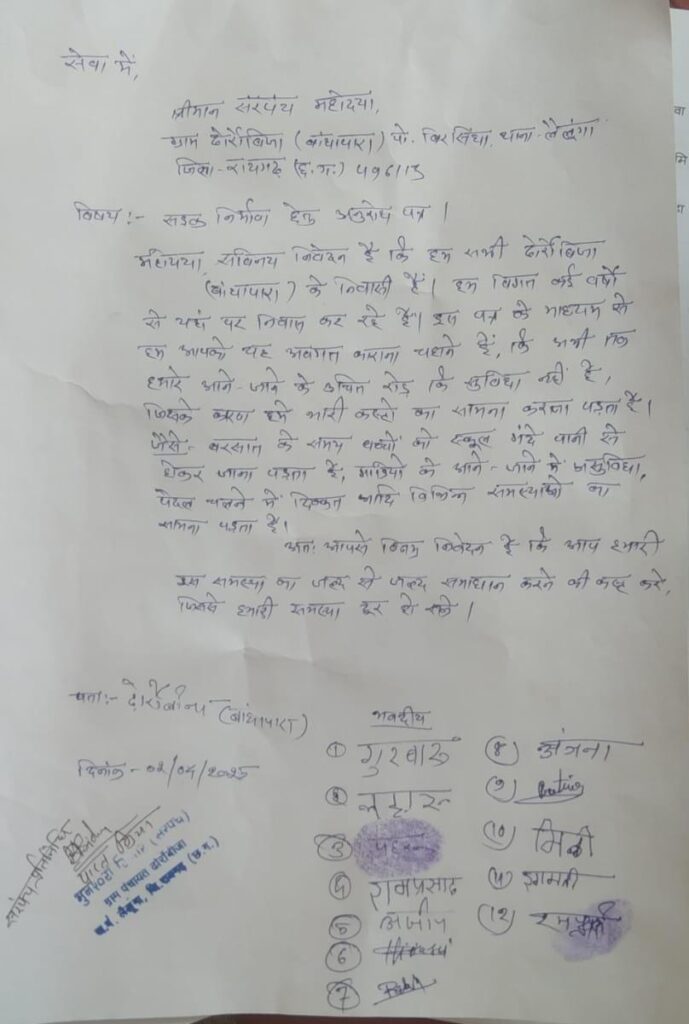 सेवा में,
श्रीमान सरपंच महोदया,
ग्राम दोर्रोबिजा (बांधापारा) पो. बिरसिंघा, थाना-लैलूंगा
जिला-रायगढ़ (छ.ग.) 496113
विषय:- सड़क निर्माण हेतु अनुरोध पत्र।
महोदया, सविनय निवेदन है कि हम सभी दोर्रोबिजा
(बांधापारा) के निवासी हैं। हम विगत कई वर्षों
से यहां पर निवास कर रहे हैं। इस पत्र के माध्यम से
हम आपको यह अवगत कराना चाहते हैं, कि अभी तक
हमारे आने-जाने के उचित रोड़ कि सुविधा नहीं है,
जिसके कारण हमे भारी कष्टो का सामना करना पड़ता है।
जैसे- बरसात के समय बच्चों को स्कूल गंदे पानी से
होकर जाना पड़ता है, गाड़ियो के आने-जाने में असुविधा,
पैदल चलने में दिक्कत आदि विभिन्न समस्याओ का
सामना पड़ता है।
अतः आपसे विनम्र निवेदन है कि आप हमारी
इस समस्या का जल्द से जल्द समाधान करने की कष्ट करे,
जिससे हमारी समस्या दूर हो सके।
पता:- दोर्रोबीजा (बांधापारा)
दिनांक- 02/04/2025
भवदीय
① गुरबारू
②
③
④ रामप्रसाद
⑤
⑥
⑦
⑧ अंजना
⑨
⑩ मिली
⑪
⑫
सरपंच-प्रतिनिधि
(सरपंच)
ग्राम पंचायत